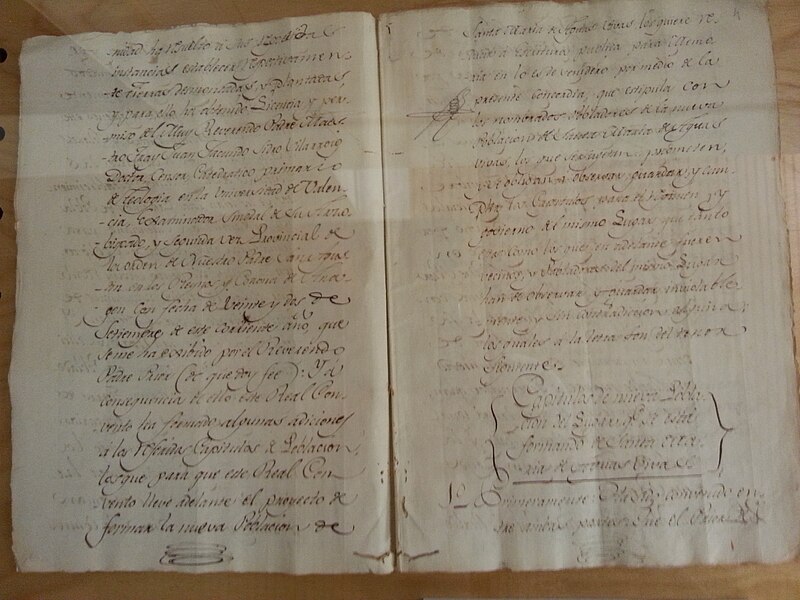 nidad ha resuelto à sus
instancias establecer
de tierras desmontadas, y plantadas,
y para ello ha obtenido Licencia y per-
-mizo de el Muy Reverendo Padre Maes-
-tro Fray Juan Facundo Sidro Vilarroig
Doctor, Censor, Catedratico primario
de Teologia en la Universidad de Valen-
-cia, Examinador Sinodal de su Arzo-
-bispado, y segunda vez Provincial de
la orden de Nuestro Padre San
-tin en los Reinos, y Corona de Ara-
-gon con fecha de Veinte y dos de
Setiembre de este corriente año, que
se me ha exibido por el Reverendo
Padre Prior (de que doy fee): Y à
consequencia de ello este Real Con-
-vento ha formado algunas adiciones
à los referidos Capitulos de Poblacion,
los que para que este Real Con-
-vento lleve adelante el proyecto de
formar la nueva Poblacion de
Santa Maria de Aguas vivas los quiere re-
à Escritura publica para
en lo es de venidero por medio de la
presente Concordia, que estipula con
los nombrados Pobladores de la nueva
Poblacion de Santa Maria de Aguas
vivas, los que prometen,
y se obligan à observar, guardar, y cum-
-plir los Capitulos para el regimen, y
govierno del mismo Lugar que tanto
estos como los que en adelante fueren
vecinos, y Pobladores del mismo Lugar
han de observar y guardar inviolable
-mente, y sin contradiccion alguna
los quales à la letra son del tenor
siguiente.
Capitulos de nueva Pobla-
-cion del Lugar qe. se està
formando de Santa Ma-
-ria de Aguas Vivas
1o. Primeramente: Pactado convenido en-
-tre ambas partes: Que el Señor